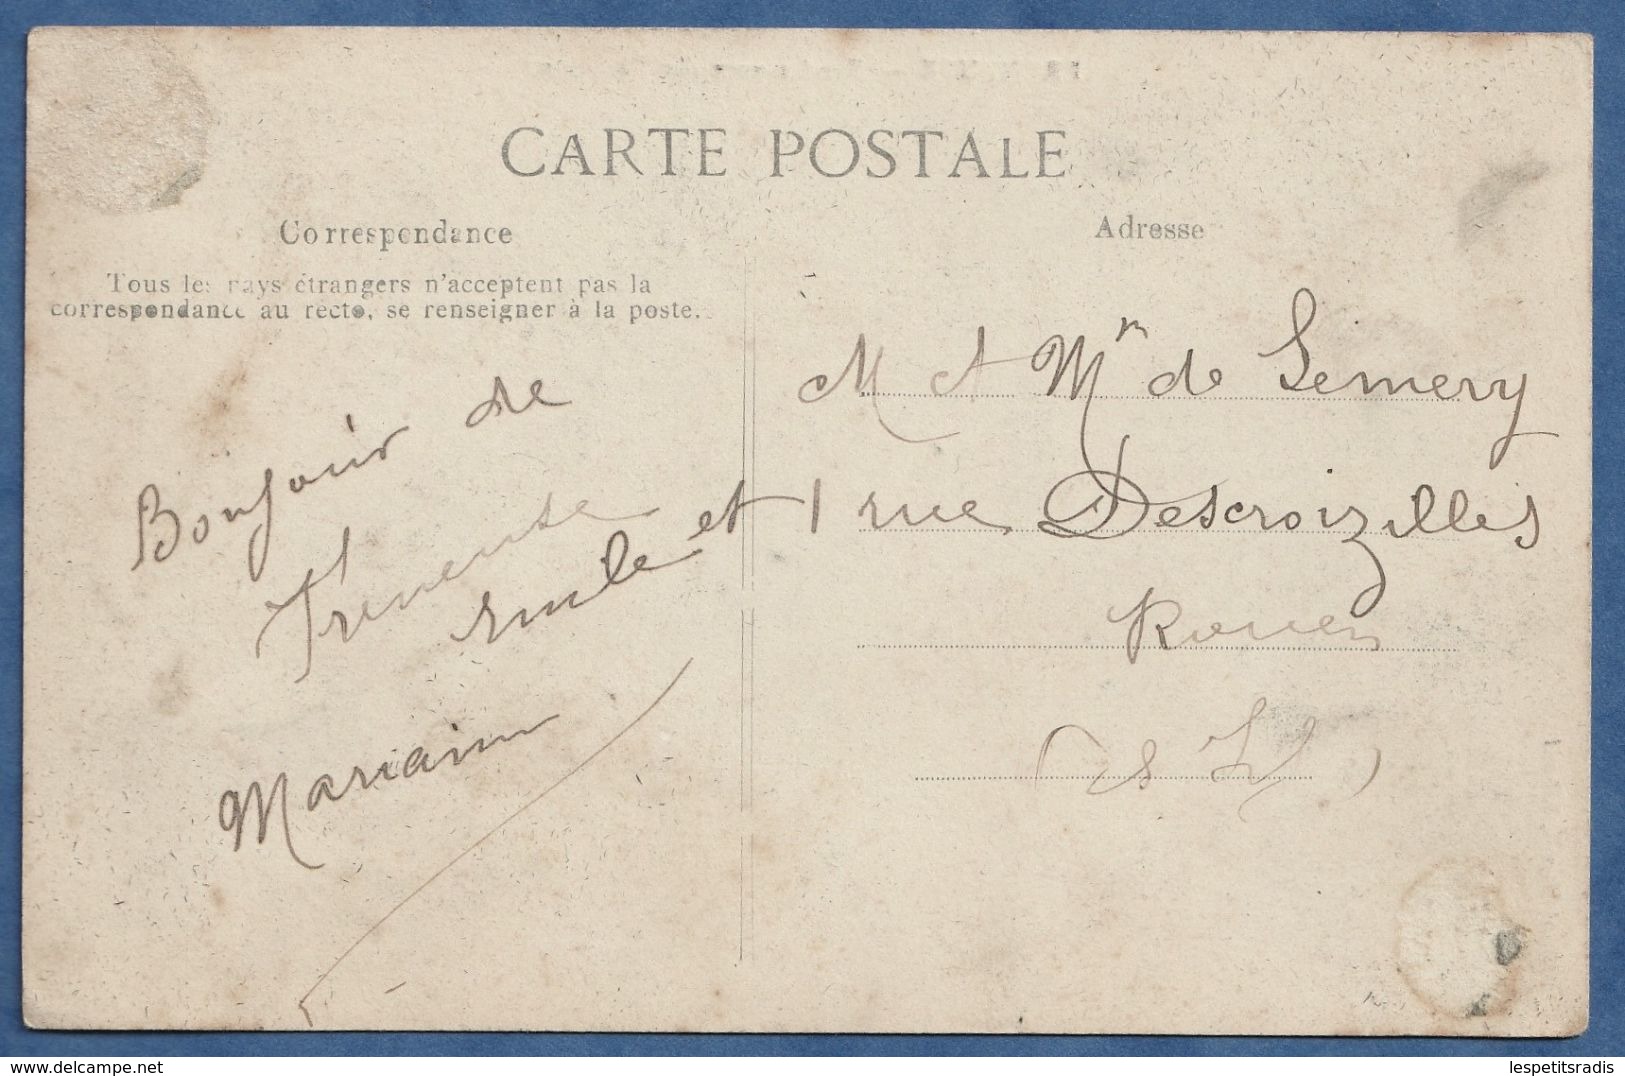 CARTE POSTALE
Correspondance
Tous les pays étrangers n'acceptent pas la
correspondance au recto, se renseigner à la poste.
Bonjour de
Freneuse
Emile et
Mariann
Adresse
M et Mm de Semery
1 rue Descroizilles
Rouen
(S I)
delcampe.net
lespetitsradis